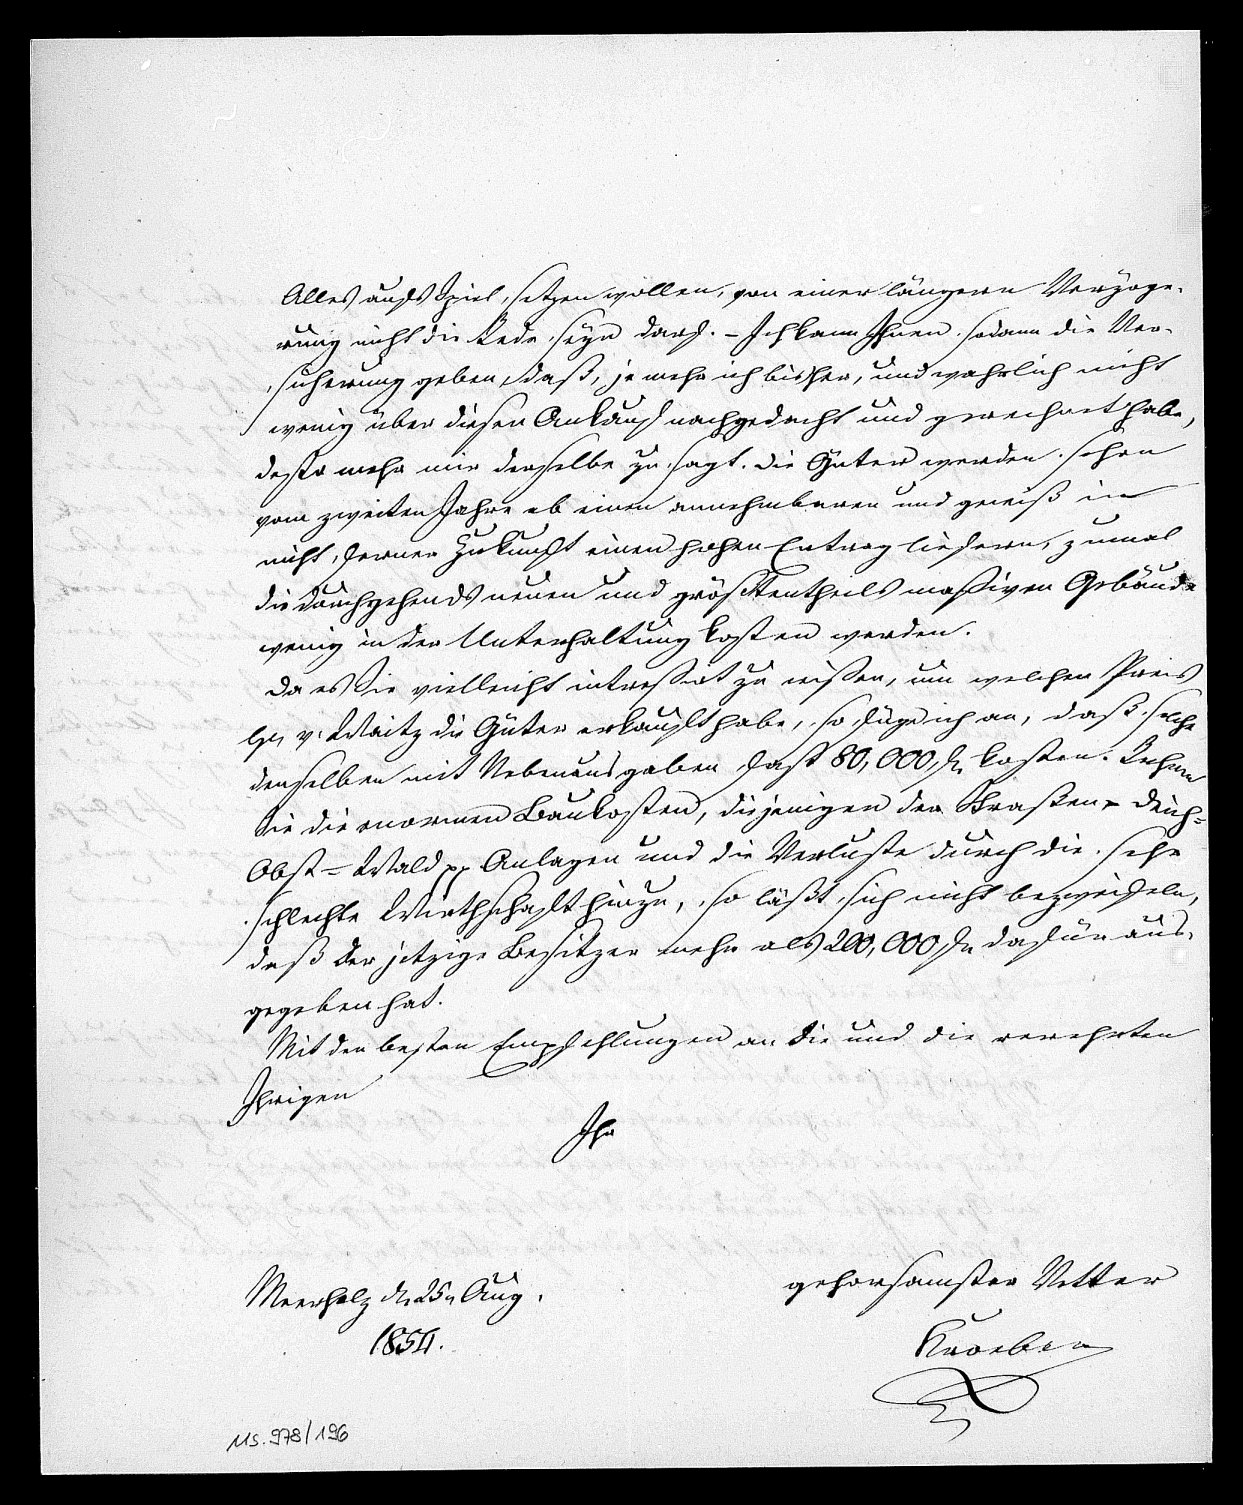 Alles aufs Spiel setzen wollen, von einer längern Verzöge-
rung nicht die Rede seyn darf. – Ich kann Ihnen sodann die Ver-
sicherung geben, daß, je mehr ich bisher, und wahrlich nicht
wenig über diesen Ankauf nachgedacht und gerechnet habe,
desto mehr mir derselbe zu sagt. Die Güter werden schon
vom zweiten Jahre ab einen annehmbaren und gewiß in
nicht ferner Zukunft einen hohen Ertrag liefern, zumal
die durchgehends neuen und größtentheils maßiven Gebäude
wenig in der Unterhaltung kosten werden.
Da es Sie vielleicht intreßirt zu wißen, um welchen Preis
H. v. Waitz die Güter erkauft habe, so füge ich an, daß solche
denselben mit Nebenausgaben fast 80,000 f. kosten. Rechnen
Sie die enormen Baukosten, diejenigen der Straßen- Deich-
Obst- Wald pp Anlagen und die Verluste durch die sehr
schlechte Wirthschaft hinzu, so läßt sich nicht bezweifeln,
daß der jetzige Besitzer mehr als 200,000 f. dafür aus-
gegeben hat.
Mit den besten Empfehlungen an Sie und die verehrten
Ihrigen
Ihr
gehorsamster Vetter
Meerholz d. 25n Aug.
1854.
Kroeber
Ms. 978/196